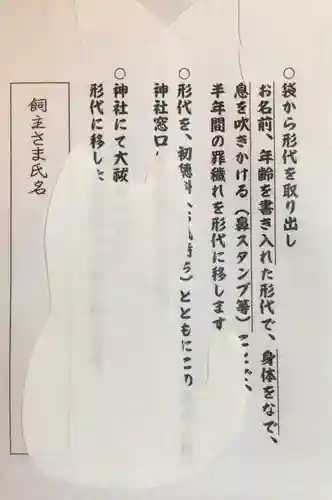 ○袋から形代を取り出し
お名前、年齢を書き入れた形代で、身体をなで、
息を吹きかける（鼻スタンプ等）ことで、
半年間の罪穢れを形代に移します
○形代を、初穂料 持ち）とともにこの
神社窓口
○神社にて大祓
形代に移した
飼主さま氏名